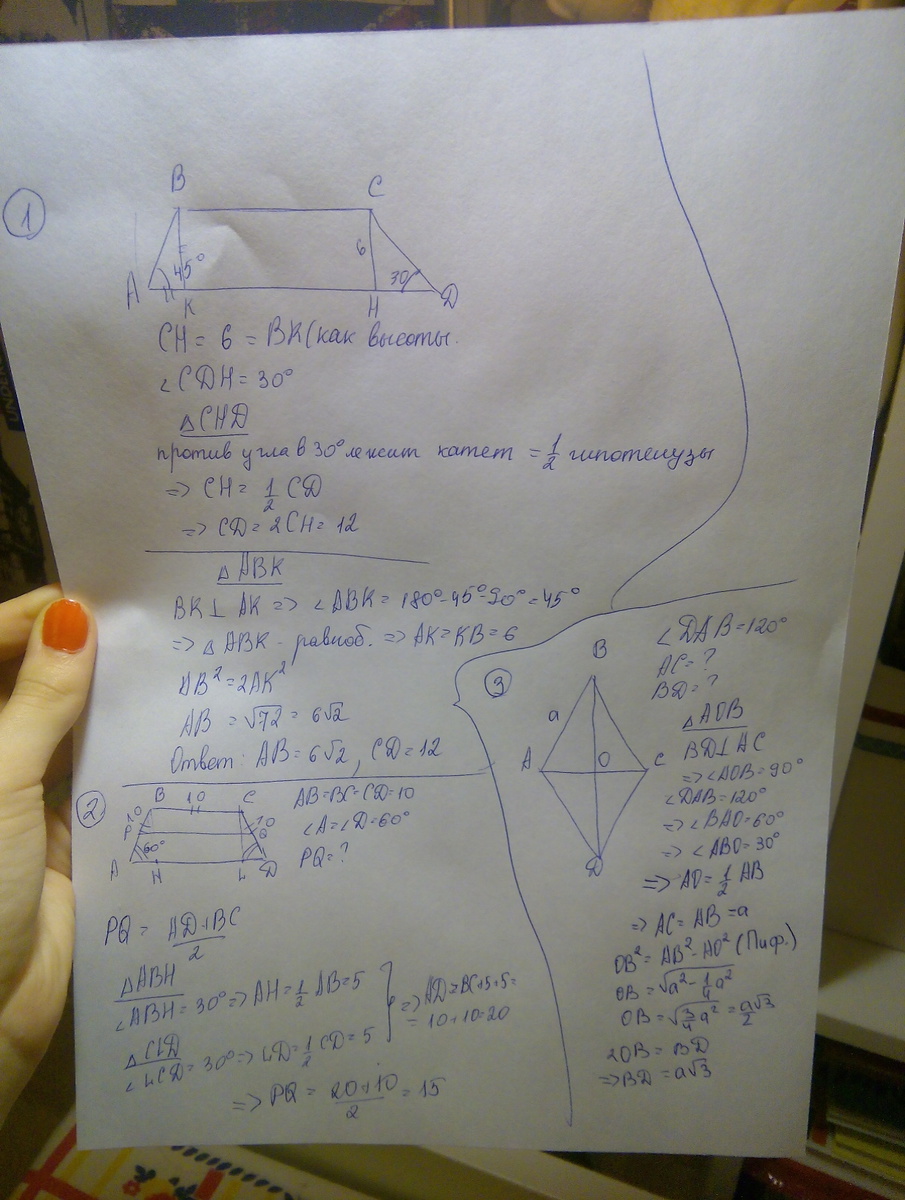 1
B C
6
45° 30
A K H D
CH = 6 = BK (как высоты.
∠CDH = 30°
△CHD
против угла в 30° лежит катет = 1/2 гипотенузы
=> CH = 1/2 CD
=> CD = 2CH = 12
△ABK
BK ⊥ AK => ∠ABK = 180° - 45° - 90° = 45°
=> △ABK - равноб. => AK = KB = 6
AB² = 2AK²
AB = √72 = 6√2
Ответ: AB = 6√2, CD = 12
2
B 10 C
10 10
P Q
60°
A H L D
AB = BC = CD = 10
∠A = ∠D = 60°
PQ = ?
PQ = AD + BC / 2
△ABH
∠ABH = 30° => AH = 1/2 AB = 5
△CLD
∠LCD = 30° => LD = 1/2 CD = 5
=> AD = BC + 5 + 5 =
= 10 + 10 = 20
=> PQ = 20 + 10 / 2 = 15
3
B
a
A O C
D
∠DAB = 120°
AC = ?
BD = ?
△AOB
BD ⊥ AC
=> ∠AOB = 90°
∠DAB = 120°
=> ∠BAO = 60°
=> ∠ABO = 30°
=> AO = 1/2 AB
=> AC = AB = a
OB² = AB² - AO² (Пиф.)
OB = √a² - 1/4 a²
OB = √3/4 a² = a√3/2
2OB = BD
=> BD = a√3